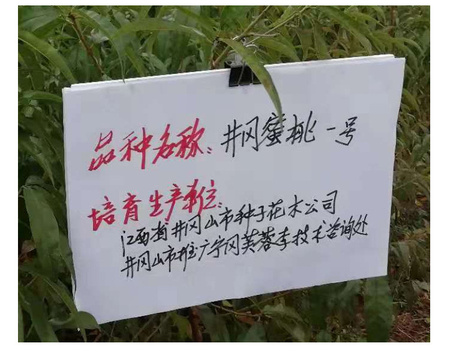 品种名称:井冈蜜桃一号
培育生产单位:
江西省井冈山市种子花木公司
井冈山市推广宁冈芙蓉李技术咨询处